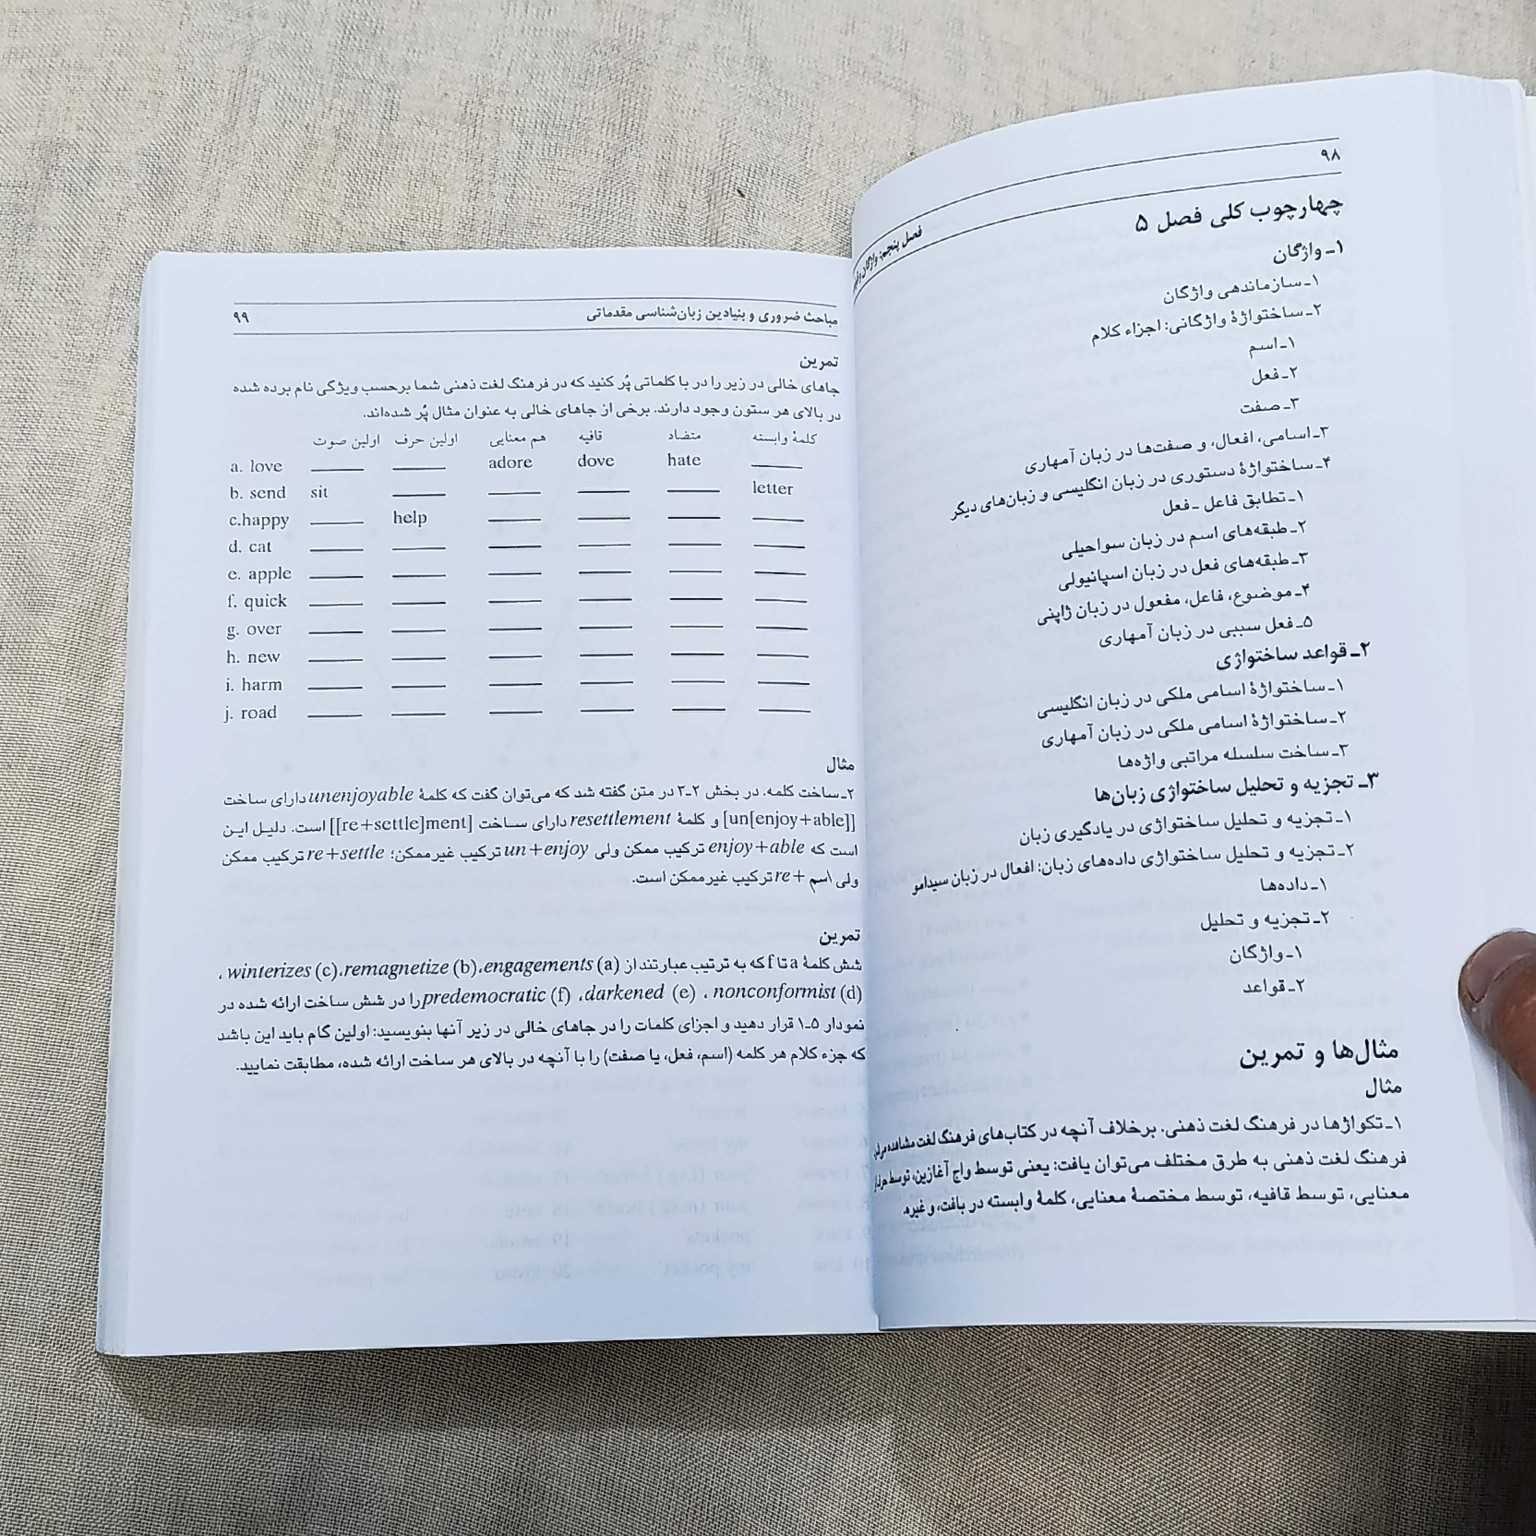 ۹۸
فصل پنجم: واژگان
چهارچوب کلی فصل ۵
۱ـ واژگان
۱ـ سازماندهی واژگان
۲ـ ساختواژهٔ واژگانی: اجزاء کلام
۱ـ اسم
۲ـ فعل
۳ـ صفت
۳ـ اسامی، افعال، و صفت‌ها در زبان آمهاری
۴ـ ساختواژهٔ دستوری در زبان انگلیسی و زبان‌های دیگر
۱ـ تطابق فاعل ـ فعل
۲ـ طبقه‌های اسم در زبان سواحیلی
۳ـ طبقه‌های فعل در زبان اسپانیولی
۴ـ موضوع، فاعل، مفعول در زبان ژاپنی
۵ـ فعل سببی در زبان آمهاری
۲ـ قواعد ساختواژی
۱ـ ساختواژهٔ اسامی ملکی در زبان انگلیسی
۲ـ ساختواژهٔ اسامی ملکی در زبان آمهاری
۳ـ ساخت سلسله مراتبی واژه‌ها
۳ـ تجزیه و تحلیل ساختواژی زبان‌ها
۱ـ تجزیه و تحلیل ساختواژی در یادگیری زبان
۲ـ تجزیه و تحلیل ساختواژی داده‌های زبان: افعال در زبان سیدامو
۱ـ داده‌ها
۲ـ تجزیه و تحلیل
۱ـ واژگان
۲ـ قواعد
مثال‌ها و تمرین
مثال
۱ـ تکواژها در فرهنگ لغت ذهنی. برخلاف آنچه در کتاب‌های فرهنگ لغت مشاهده
فرهنگ لغت ذهنی به طرق مختلف می‌توان یافت: یعنی توسط واج آغازین، توسط
معنایی، توسط قافیه، توسط مختصهٔ معنایی، کلمهٔ وابسته در بافت، و غیره.
مباحث ضروری و بنیادین زبان‌شناسی مقدماتی ۹۹
تمرین
جاهای خالی در زیر را در با کلماتی پُر کنید که در فرهنگ لغت ذهنی شما برحسب ویژگی نام برده شده
در بالای هر ستون وجود دارند. برخی از جاهای خالی به عنوان مثال پُر شده‌اند.
اولین صوت اولین حرف هم معنایی قافیه متضاد کلمهٔ وابسته
a. love ____ ____ adore dove hate ____
b. send sit ____ ____ ____ ____ letter
c.happy ____ help ____ ____ ____ ____
d. cat ____ ____ ____ ____ ____ ____
e. apple ____ ____ ____ ____ ____ ____
f. quick ____ ____ ____ ____ ____ ____
g. over ____ ____ ____ ____ ____ ____
h. new ____ ____ ____ ____ ____ ____
i. harm ____ ____ ____ ____ ____ ____
j. road ____ ____ ____ ____ ____ ____
مثال
۲ـ ساخت کلمه. در بخش ۲ـ۳ در متن گفته شد که می‌توان گفت که کلمهٔ unenjoyable دارای ساخت
[un[enjoy+able]] و کلمهٔ resettlement دارای ساخت [[re+settle]ment] است. دلیل این
است که enjoy+able ترکیب ممکن ولی un+enjoy ترکیب غیرممکن؛ re+settle ترکیب ممکن
ولی اسم +re ترکیب غیرممکن است.
تمرین
شش کلمهٔ a تا f که به ترتیب عبارتند از (a) engagements، (b) remagnetize، (c) winterizes،
(d) nonconformist، (e) darkened، (f) predemocratic را در شش ساخت ارائه شده در
نمودار ۵ـ۱ قرار دهید و اجزای کلمات را در جاهای خالی در زیر آنها بنویسید: اولین گام باید این باشد
که جزء کلام هر کلمه (اسم، فعل، یا صفت) را با آنچه در بالای هر ساخت ارائه شده، مطابقت نمایید.